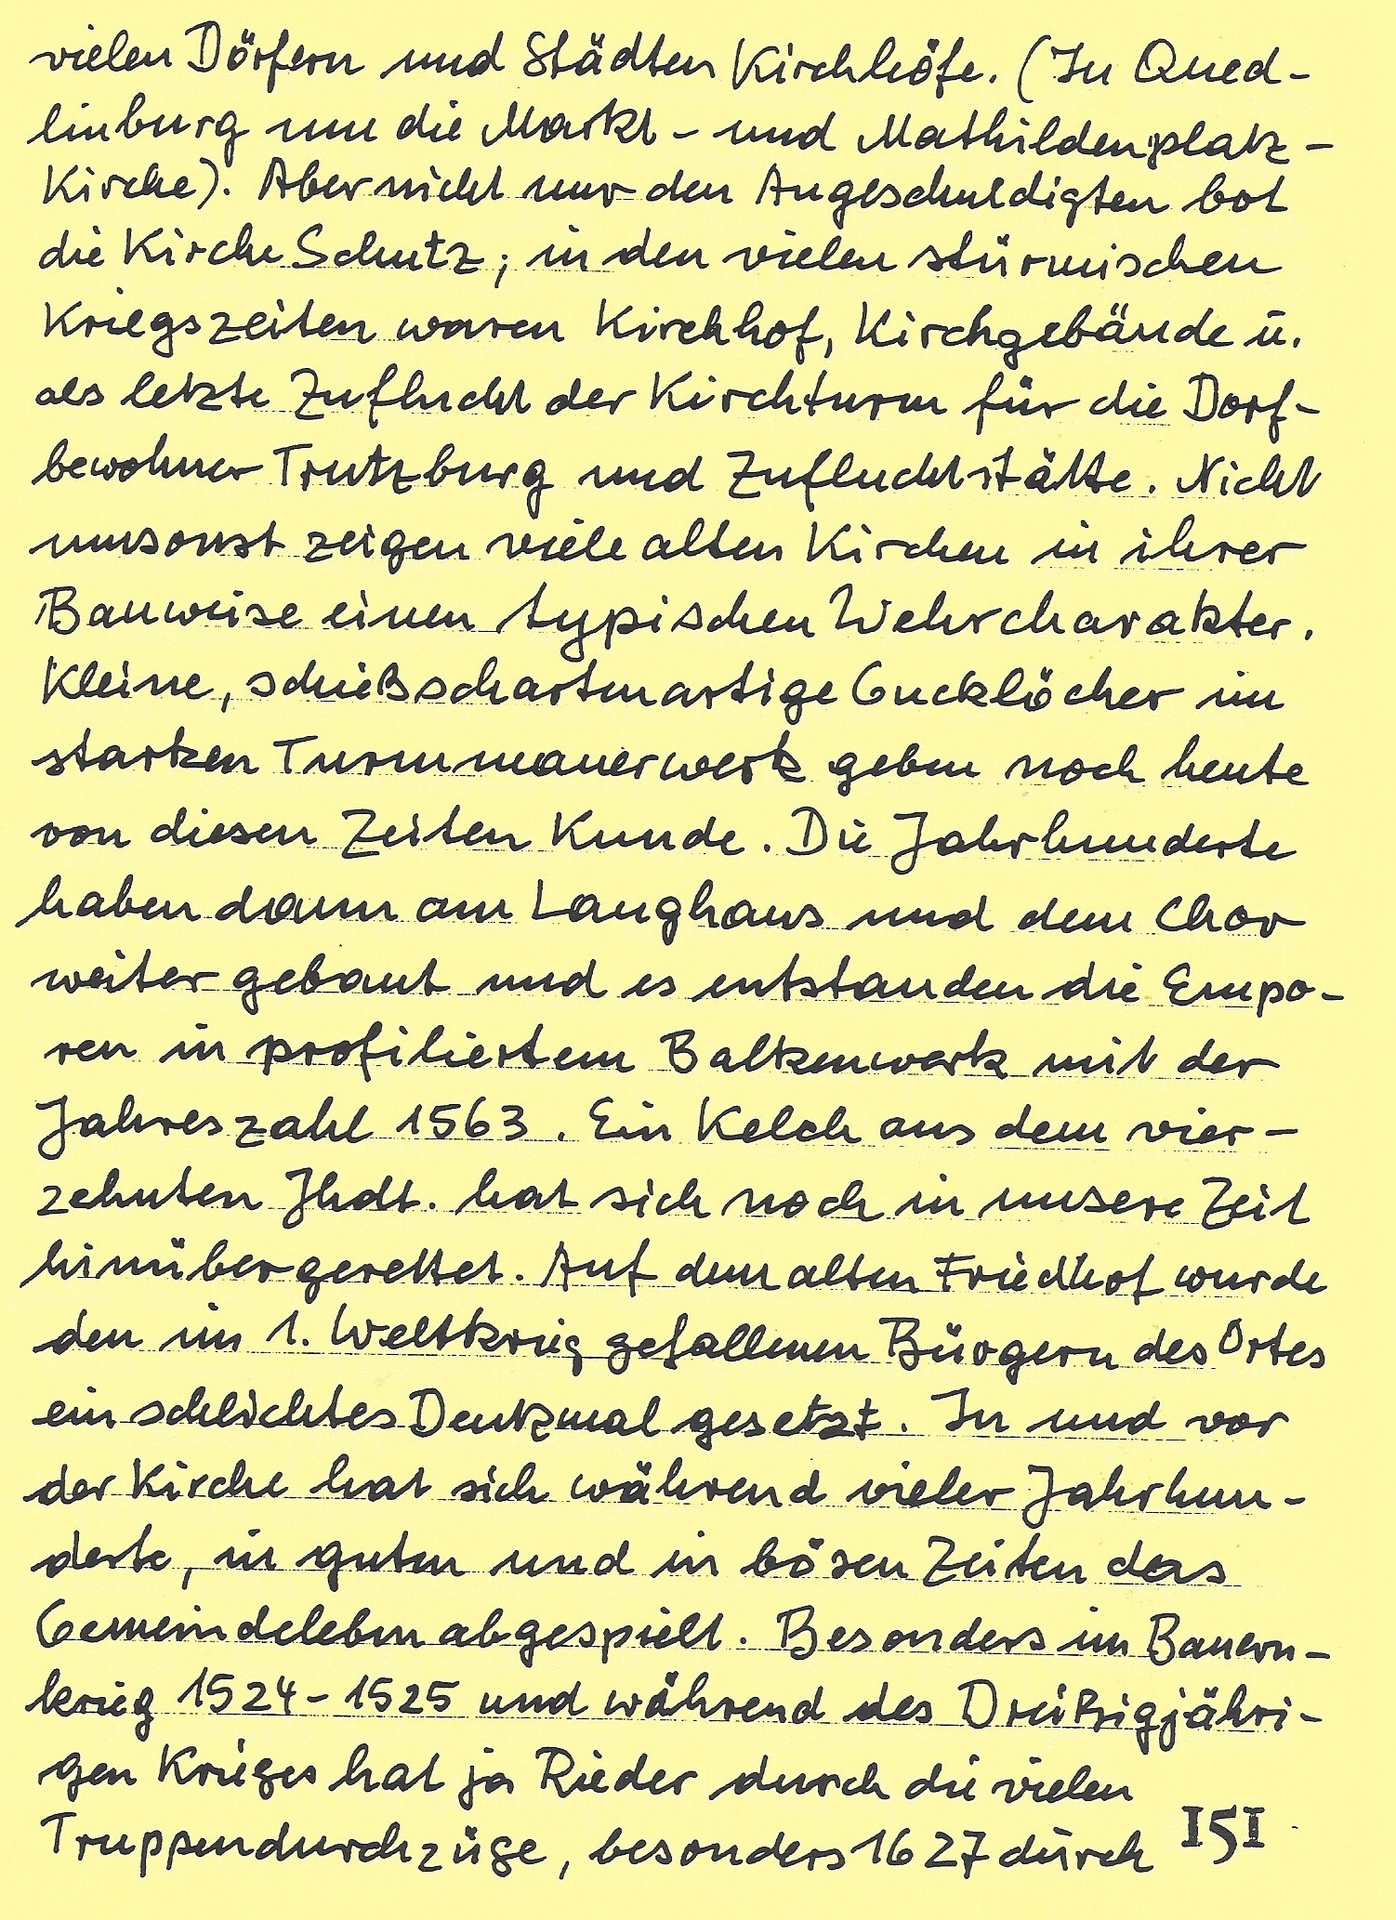 vielen Dörfern und Städten Kirchhöfe. (In Qued-
linburg um die Markt- und Mathildenplatz-
Kirche). Aber nicht nur den Angeschuldigten bot
die Kirche Schutz; in den vielen stürmischen
Kriegszeiten waren Kirchhof, Kirchgebäude u.
als letzte Zuflucht der Kirchturm für die Dorf-
bewohner Trutzburg und Zufluchtstätte. Nicht
umsonst zeigen viele alten Kirchen in ihrer
Bauweise einen typischen Wehrcharakter.
Kleine, schießschartenartige Gucklöcher im
starken Turmmauerwerk geben noch heute
von diesen Zeiten Kunde. Die Jahrhunderte
haben dann am Langhaus und dem Chor
weiter gebaut und es entstanden die Empo-
ren in profiliertem Balkenwerk mit der
Jahreszahl 1563. Ein Kelch aus dem vier-
zehnten Jhdt. hat sich noch in unsere Zeit
hinübergerettet. Auf dem alten Friedhof wurde
den im 1. Weltkrieg gefallenen Bürgern des Ortes
ein schlichtes Denkmal gesetzt. In und vor
der Kirche hat sich während vieler Jahrhun-
derte, in guten und in bösen Zeiten das
Gemeindeleben abgespielt. Besonders im Bauern-
krieg 1524-1525 und während des Dreißigjähri-
gen Krieges hat ja Rieder durch die vielen
Truppendurchzüge, besonders 1627 durch
151